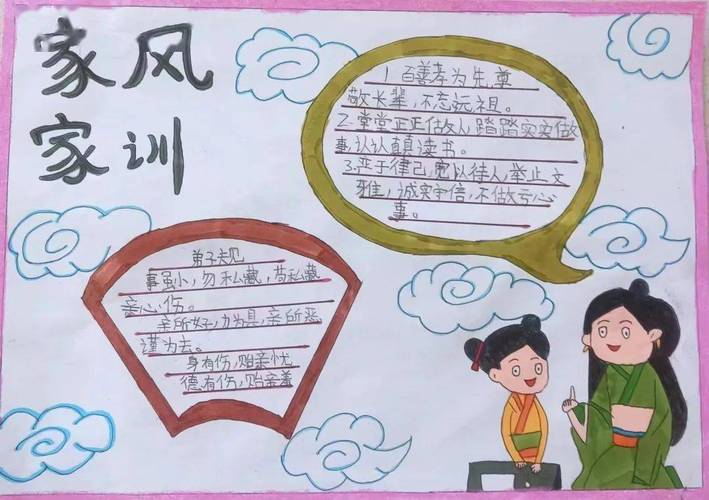 家风
家训
1.百善孝为先,尊
敬长辈,不忘远祖。
2.堂堂正正做人,踏踏实实做
事,认认真真读书。
3.严于律己,宽以待人,举止文
雅,诚实守信,不做亏心
事。
弟子规
事虽小,勿私藏,苟私藏
亲心伤。
亲所好,力为具,亲所恶
谨为去。
身有伤,贻亲忧
德有伤,贻亲羞